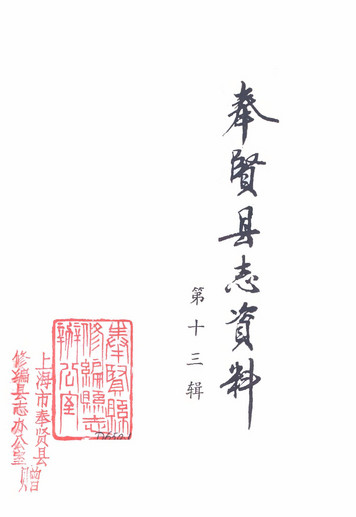 奉賢县志資料
第十三辑
奉賢縣
修編縣志
辦公室
上海市奉贤县
修编县志办公室赠